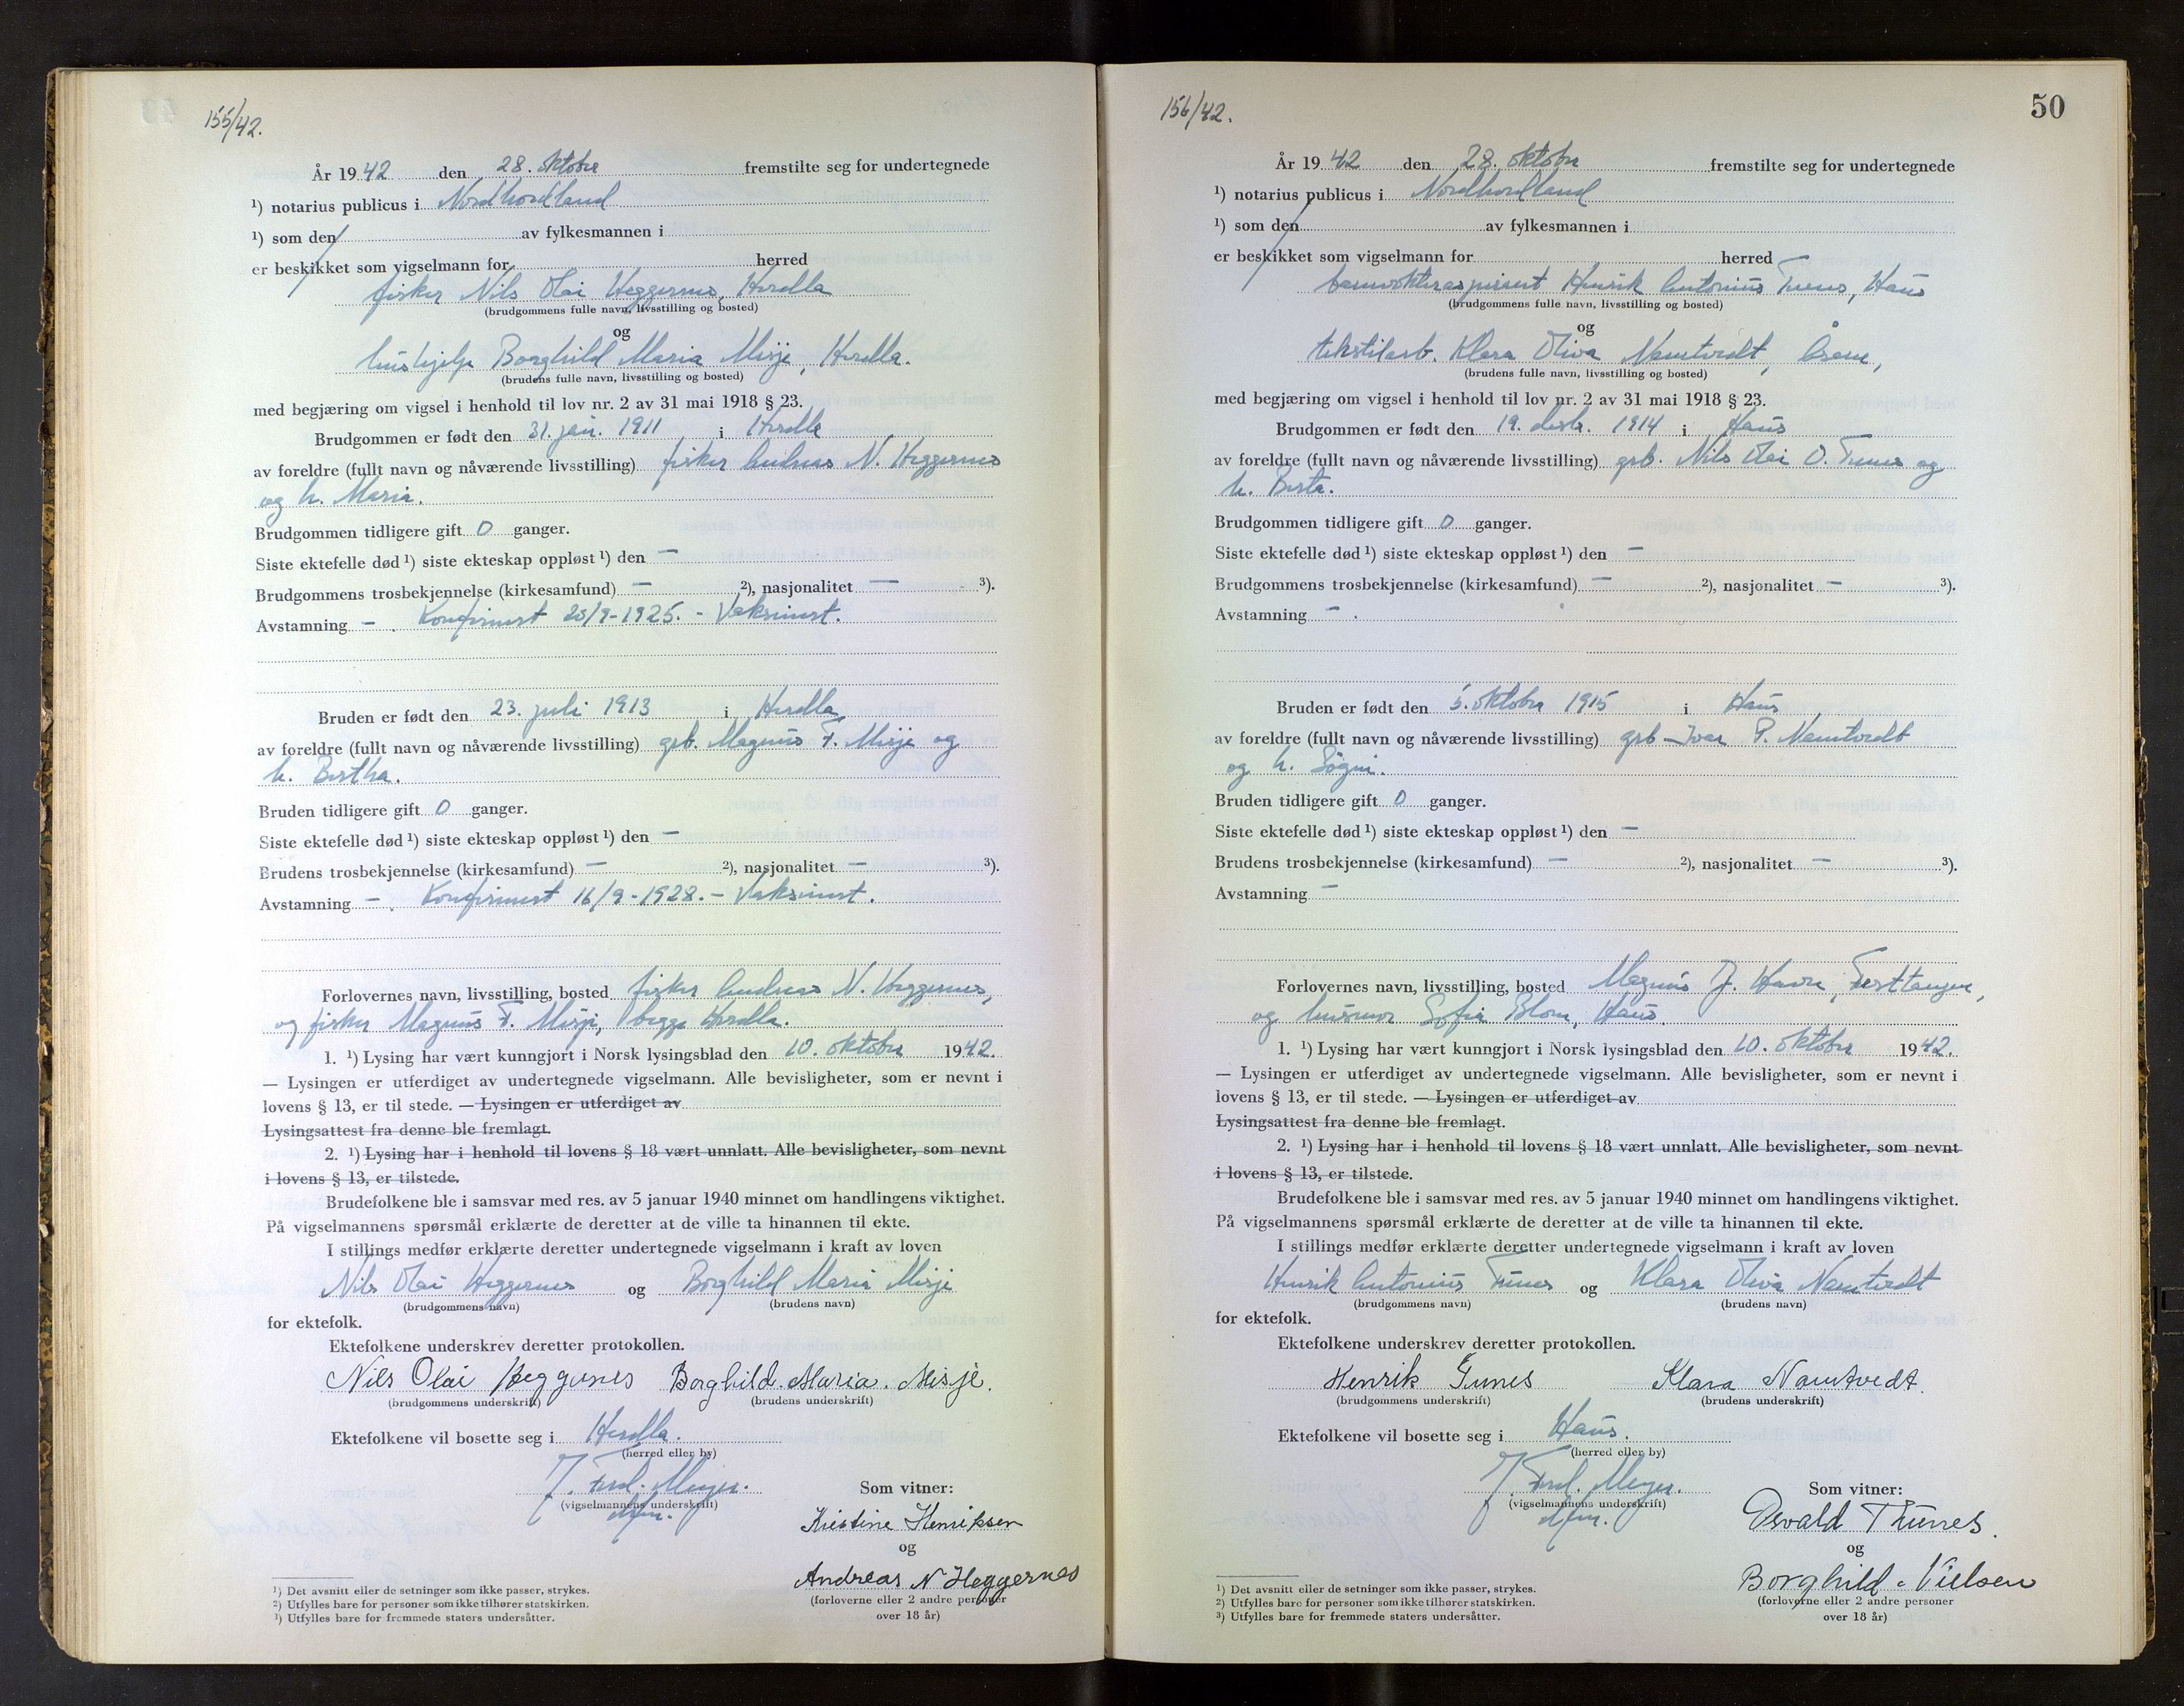 155/42.
År 1942 den 28. oktober fremstilte seg for undertegnede
¹) notarius publicus i Nordhordland
¹) som den av fylkesmannen i
er beskikket som vigselmann for herred
fisker Nils Olai Heggernes, Herdla
(brudgommens fulle navn, livsstilling og bosted)
og
hushjelp Borghild Maria Misje, Herdla.
(brudens fulle navn, livsstilling og bosted)
med begjæring om vigsel i henhold til lov nr. 2 av 31 mai 1918 § 23.
Brudgommen er født den 31. jan. 1911 i Herdla
av foreldre (fullt navn og nåværende livsstilling) fisker Andreas N. Heggernes
og h. Maria.
Brudgommen tidligere gift 0 ganger.
Siste ektefelle død ¹) siste ekteskap oppløst ¹) den —
Brudgommens trosbekjennelse (kirkesamfund) — ²), nasjonalitet — ³).
Avstamning — . Konfirmert 20/9-1925. - Vaksinert.
Bruden er født den 23. juli 1913 i Herdla
av foreldre (fullt navn og nåværende livsstilling) grb. Magnus F. Misje og
h. Bertha.
Bruden tidligere gift 0 ganger.
Siste ektefelle død ¹) siste ekteskap oppløst ¹) den —
Brudens trosbekjennelse (kirkesamfund) — ²), nasjonalitet — ³).
Avstamning — . Konfirmert 16/9-1928. - Vaksinert.
Forlovernes navn, livsstilling, bosted fisker Andreas N. Heggernes,
og fisker Magnus F. Misje, begge Herdla.
1. ¹) Lysing har vært kunngjort i Norsk lysingsblad den 10. oktober 1942.
— Lysingen er utferdiget av undertegnede vigselmann. Alle bevisligheter, som er nevnt i
lovens § 13, er til stede. — Lysingen er utferdiget av
Lysingsattest fra denne ble fremlagt.
2. ¹) Lysing har i henhold til lovens § 18 vært unnlatt. Alle bevisligheter, som nevnt
i lovens § 13, er tilstede.
Brudefolkene ble i samsvar med res. av 5 januar 1940 minnet om handlingens viktighet.
På vigselmannens spørsmål erklærte de deretter at de ville ta hinannen til ekte.
I stillings medfør erklærte deretter undertegnede vigselmann i kraft av loven
Nils Olai Heggernes og Borghild Maria Misje
(brudgommens navn) (brudens navn)
for ektefolk.
Ektefolkene underskrev deretter protokollen.
Nils Olai Heggernes Borghild. Maria. Misje.
(brudgommens underskrift) (brudens underskrift)
Ektefolkene vil bosette seg i Herdla.
(herred eller by)
J. Fred. Meyer.
(vigselmannens underskrift)
Som vitner:
Kristine Henriksen
og
Andreas N Heggernes
(forloverne eller 2 andre personer
over 18 år)
¹) Det avsnitt eller de setninger som ikke passer, strykes.
²) Utfylles bare for personer som ikke tilhører statskirken.
³) Utfylles bare for fremmede staters undersåtter.
156/42.
50
År 1942 den 28. oktober fremstilte seg for undertegnede
¹) notarius publicus i Nordhordland
¹) som den av fylkesmannen i
er beskikket som vigselmann for herred
banevokteraspirant Henrik Antonius Tunes, Haus
(brudgommens fulle navn, livsstilling og bosted)
og
tekstilarb. Klara Oliva Namtvedt, Åsane,
(brudens fulle navn, livsstilling og bosted)
med begjæring om vigsel i henhold til lov nr. 2 av 31 mai 1918 § 23.
Brudgommen er født den 19. desbr. 1914 i Haus
av foreldre (fullt navn og nåværende livsstilling) grb. Nils Olai O. Tunes og
h. Berta.
Brudgommen tidligere gift 0 ganger.
Siste ektefelle død ¹) siste ekteskap oppløst ¹) den —
Brudgommens trosbekjennelse (kirkesamfund) — ²), nasjonalitet — ³).
Avstamning — .
Bruden er født den 5. oktober 1915 i Haus
av foreldre (fullt navn og nåværende livsstilling) grb Ivar P. Namtvedt
og h. Søgni.
Bruden tidligere gift 0 ganger.
Siste ektefelle død ¹) siste ekteskap oppløst ¹) den —
Brudens trosbekjennelse (kirkesamfund) — ²), nasjonalitet — ³).
Avstamning —
Forlovernes navn, livsstilling, bosted Magnus J. Havre, Festtangen,
og husmor Sofie Blom, Haus.
1. ¹) Lysing har vært kunngjort i Norsk lysingsblad den 10. oktober 1942.
— Lysingen er utferdiget av undertegnede vigselmann. Alle bevisligheter, som er nevnt i
lovens § 13, er til stede. — Lysingen er utferdiget av
Lysingsattest fra denne ble fremlagt.
2. ¹) Lysing har i henhold til lovens § 18 vært unnlatt. Alle bevisligheter, som nevnt
i lovens § 13, er tilstede.
Brudefolkene ble i samsvar med res. av 5 januar 1940 minnet om handlingens viktighet.
På vigselmannens spørsmål erklærte de deretter at de ville ta hinannen til ekte.
I stillings medfør erklærte deretter undertegnede vigselmann i kraft av loven
Henrik Antonius Tunes og Klara Oliva Namtvedt
(brudgommens navn) (brudens navn)
for ektefolk.
Ektefolkene underskrev deretter protokollen.
Henrik Tunes Klara Namtvedt.
(brudgommens underskrift) (brudens underskrift)
Ektefolkene vil bosette seg i Haus.
(herred eller by)
J. Fred. Meyer.
(vigselmannens underskrift)
Som vitner:
Osvald Thunes.
og
Borghild Nielsen
(forloverne eller 2 andre personer
over 18 år)
¹) Det avsnitt eller de setninger som ikke passer, strykes.
²) Utfylles bare for personer som ikke tilhører statskirken.
³) Utfylles bare for fremmede staters undersåtter.